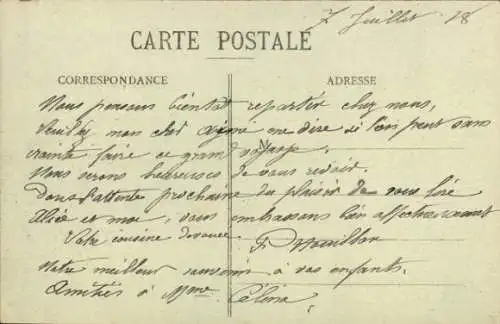 7 Juillet 18
CARTE POSTALE
CORRESPONDANCE
ADRESSE
Nous pensons bientôt repartir chez nous,
Veuillez mon cher me dire si l'on peut sans
crainte faire ce grand voyage.
Nous serons heureuses de vous revoir.
Dans l'attente prochaine du plaisir de vous lire
Alice et moi, vous embrassons bien affectueusement
Votre cousine dévouée
Notre meilleur souvenir à vos enfants.
Amitiés à Mme Célina